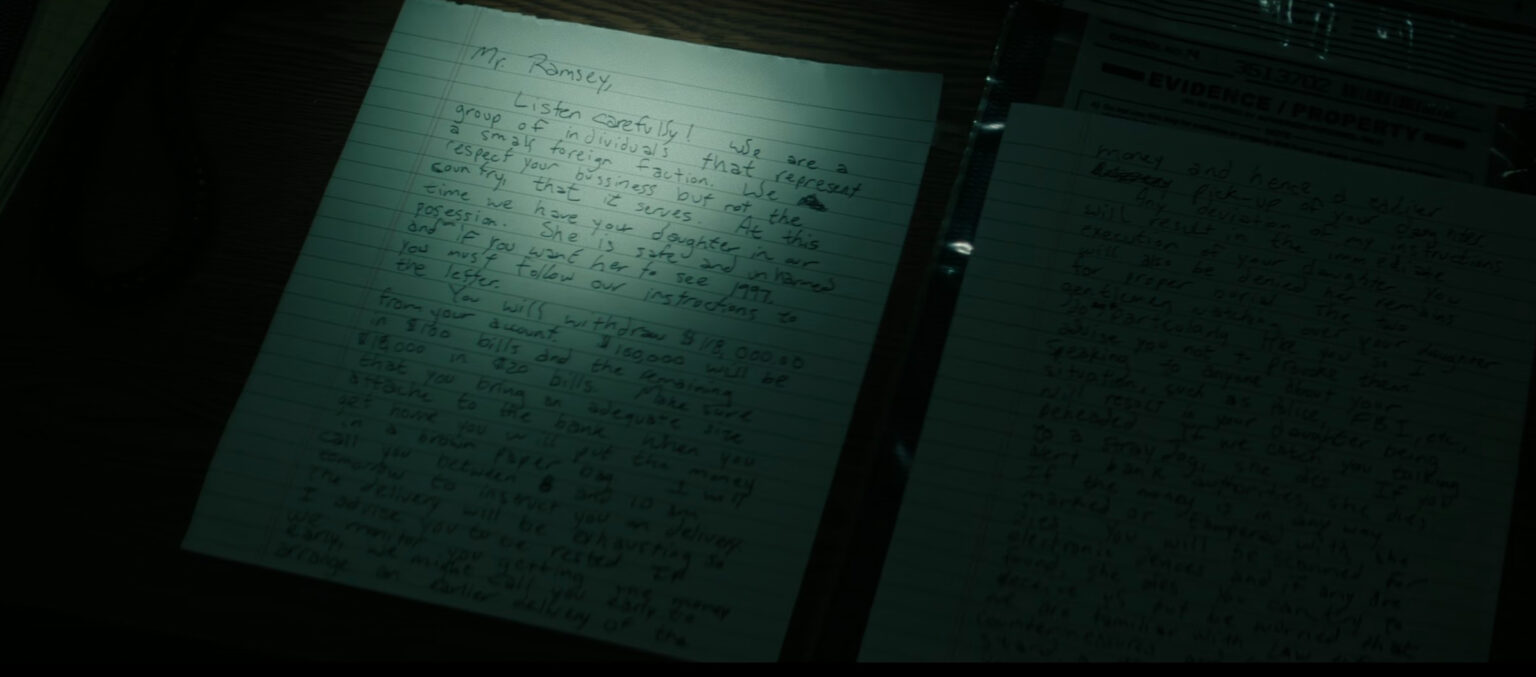 Mr. Ramsey,
Listen carefully! We are a
group of individuals that represent
a small foreign faction. We
respect your bussiness but not the
country, that it serves. At this
time we have your daughter in our
posession. She is safe and unharmed
and if you want her to see 1997,
you must follow our instructions to
the letter.
You will withdraw $118,000.00
from your account. $100,000 will be
in $100 bills and the remaining
$18,000 in $20 bills. Make sure
that you bring an adequate size
attache to the bank. When you
get home you will put the money
in a brown paper bag. I will
call you between 8 and 10 am
tomorrow to instruct you on delivery.
The delivery will be exhausting so
I advise you to be rested. If
we monitor you getting the money
early, we might call you early to
arrange an earlier delivery of the
EVIDENCE / PROPERTY
money and hence a earlier
pick-up of your daughter.
Any deviation of my instructions
will result in the immediate
execution of your daughter. You
will also be denied her remains
for proper burial. The two
gentlemen watching over your daughter
do particularly like you so I
advise you not to provoke them.
Speaking to anyone about your
situation, such as Police, F.B.I., etc.,
will result in your daughter being
beheaded. If we catch you talking
to a stray dog, she dies. If you
alert bank authorities, she dies.
If the money is in any way
marked or tampered with, she
dies. You will be scanned for
electronic devices and if any are
found, she dies. You can try to
deceive us but be warned that
we are familiar with Law
countermeasures